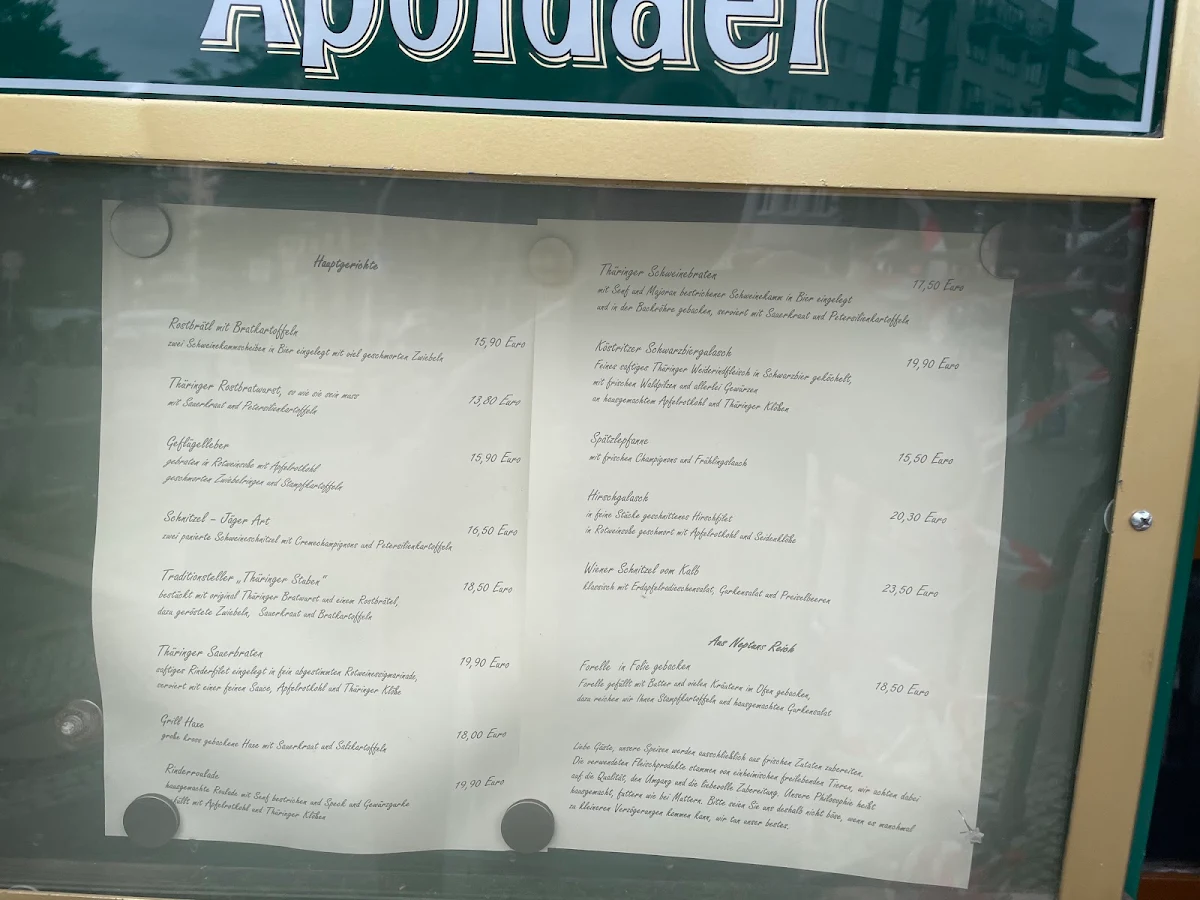 Apoldaer
Hauptgerichte
Rostbrätl mit Bratkartoffeln
15,90 Euro
zwei Schweinekammscheiben in Bier eingelegt mit viel geschmorten Zwiebeln
Thüringer Rostbratwurst, so wie sie sein muss
13,80 Euro
mit Sauerkraut und Petersilienkartoffeln
Geflügelleber
15,90 Euro
gebraten in Rotweinsoße mit Apfelrotkohl
geschmorten Zwiebelringen und Stampfkartoffeln
Schnitzel – Jäger Art
16,50 Euro
zwei panierte Schweineschnitzel mit Cremechampignons und Petersilienkartoffeln
Traditionsteller „Thüringer Stuben"
18,50 Euro
bestückt mit original Thüringer Bratwurst und einem Rostbrätel,
dazu geröstete Zwiebeln, Sauerkraut und Bratkartoffeln
Thüringer Sauerbraten
19,90 Euro
saftiges Rinderfilet eingelegt in fein abgestimmten Rotweinessigmarinade,
serviert mit einer feinen Sauce, Apfelrotkohl und Thüringer Klöße
Grill Haxe
18,00 Euro
große kross gebackene Haxe mit Sauerkraut und Salzkartoffeln
Rinderroulade
19,90 Euro
hausgemachte Roulade mit Senf bestrichen und Speck und Gewürzgurke
füllt mit Apfelrotkohl und Thüringer Klößen
Thüringer Schweinebraten
17,50 Euro
mit Senf und Majoran bestrichener Schweinekamm in Bier eingelegt
und in der Backröhre gebacken, serviert mit Sauerkraut und Petersilienkartoffeln
Köstritzer Schwarzbiergulasch
19,90 Euro
Feines saftiges Thüringer Weiderindfleisch in Schwarzbier geköchelt,
mit frischen Waldpilzen und allerlei Gewürzen
an hausgemachtem Apfelrotkohl und Thüringer Klößen
Spätzlepfanne
15,50 Euro
mit frischen Champignons und Frühlingslauch
Hirschgulasch
20,30 Euro
in feine Stücke geschnittenes Hirschfilet
in Rotweinsoße geschmort mit Apfelrotkohl und Seidenklöße
Wiener Schnitzel vom Kalb
23,50 Euro
klassisch mit Erdapfelradieschensalat, Gurkensalat und Preiselbeeren
Aus Neptuns Reich
Forelle in Folie gebacken
18,50 Euro
Forelle gefüllt mit Butter und vielen Kräutern im Ofen gebacken,
dazu reichen wir Ihnen Stampfkartoffeln und hausgemachten Gurkensalat
Liebe Gäste, unsere Speisen werden ausschließlich aus frischen Zutaten zubereitet.
Die verwendeten Fleischprodukte stammen von einheimischen freilebenden Tieren, wir achten dabei
auf die Qualität, den Umgang und die liebevolle Zubereitung. Unsere Philosophie heißt
hausgemacht, futtern wie bei Muttern. Bitte seien Sie uns deshalb nicht böse, wenn es manchmal
zu kleineren Verzögerungen kommen kann, wir tun unser bestes.